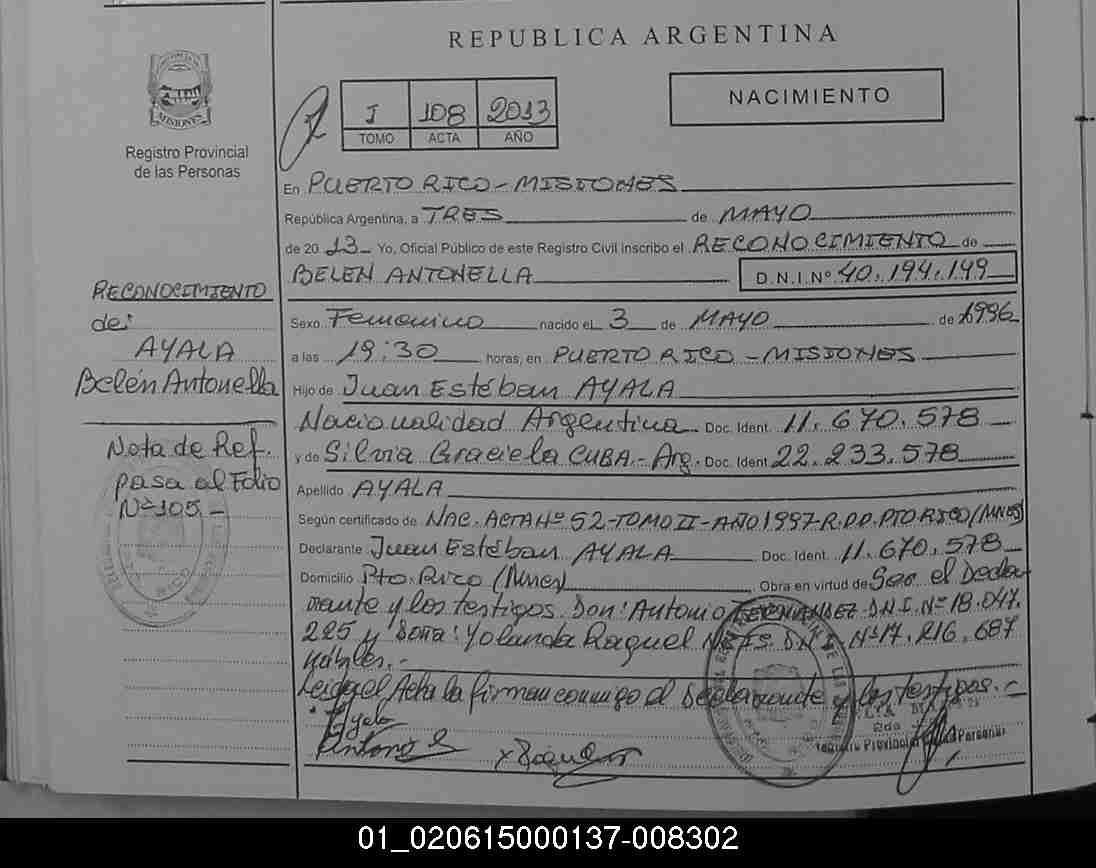 REPUBLICA ARGENTINA
MISIONES
Registro Provincial
de las Personas
I 108 2013
TOMO ACTA AÑO
NACIMIENTO
En PUERTO RICO - MISIONES
República Argentina, a TRES de MAYO
de 20 13 Yo, Oficial Público de este Registro Civil inscribo el RECONOCIMIENTO de
BELEN ANTONELLA D.N.I.Nº 40.194.149
RECONOCIMIENTO
de:
AYALA
Belén Antonella
Nota de Ref.
pasa al Folio
Nº 105.-
Sexo Femenino nacido el 3 de MAYO de 1996
a las 19:30 horas, en PUERTO RICO - MISIONES
Hijo de Juan Estéban AYALA
Nacionalidad Argentina Doc. Ident. 11.670.578
y de Silvia Graciela CUBA.- Arg. Doc. Ident 22.233.578
Apellido AYALA
Según certificado de NAC. ACTA Nº 52-TOMO II-AÑO 1997-R.P.P. PTO RICO/(MNES)
Declarante Juan Estéban AYALA Doc. Ident. 11.670.578
Domicilio Pto. Rico (Mnes) Obra en virtud de Ser el Decla
rante y los testigos. Don: Antonio FERNANDEZ D.N.I. Nº 18.047.
225 y Doña: Yolanda Raquel D.N.I. Nº 17.216.687
hábiles.-
Leída el Acta la firman conmigo el Declarante y los testigos.-
Ayala
Antonio
2do
Registro Provincial Personas
01_020615000137-008302